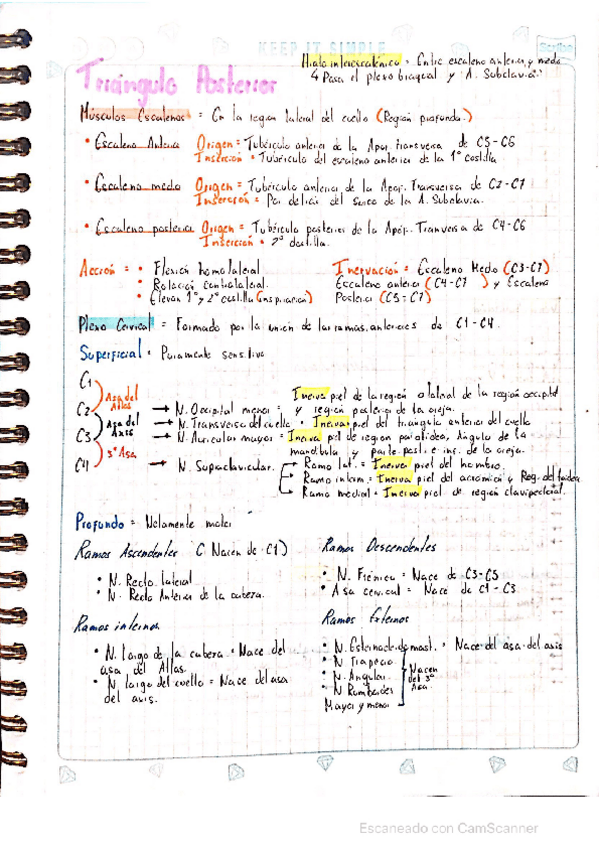 KEEP IT SIMPLE
Scribe
Hiato interescalénico = Entre escaleno anterior y medio
↳ Pasa el plexo braquial y A. Subclavia
Triángulo Posterior
Músculos Escalenos = En la region lateral del cuello (Región profunda.)
• Escaleno Anterior Origen = Tubérculo anterior de la Apof. transversa de C3-C6
Inserción = Tubérculo del escaleno anterior de la 1° costilla
• Escaleno medio Origen = Tubérculo anterior de la Apof. Transversa de C2-C7
Inserción = Por detrás del surco de la A. Subclavia.
• Escaleno posterior Origen = Tubérculo posterior de la Apóf. Tranversa de C4-C6
Inserción = 2° costilla.
Acción = • Flexión homolateral
• Rotación contralateral.
• Elevan 1° y 2° costilla (inspiración)
Inervación = Escaleno Medo (C3-C7)
Escaleno anterior (C4-C7) y Escaleno
Posterior (C5-C7)
Plexo Cervical = Formado por la union de las ramas anteriores de C1-C4.
Superficial = Puramente sensitivo
C1
Asa del Atlas
C2
Asa del Axis
C3
3° Asa
C4
→ N. Occipital menor = Inerva piel de la región lateral de la región occipital
y region posterior de la oreja.
→ N. Transverso del cuello = Inerva piel del triangulo anterior del cuello
→ N. Auricular mayor = Inerva piel de region parotidea, Angulo de la
mandibula y parte post. e inf. de la oreja.
→ N. Supraclavicular. Ramo lat. = Inerva piel del hombro.
Ramo interm. = Inerva piel del acromion y Reg. deltoidea
Ramo medial = Inerva piel de región clavipectoral.
Profundo = Netamente motor
Ramos Ascendentes (Nacen de C1)
• N. Recto lateral
• N. Recto Anterior de la cabeza.
Ramos Descendentes
• N. Frénico = Nace de C3-C5
• Asa cervical = Nace de C1-C3
Ramos internos
• N. largo de la cabeza = Nace del
asa del Atlas.
• N. largo del cuello = Nace del asa
del axis.
Ramos Externos
• N. Esternocleidomast. = Nace del asa del axis
• N Trapecio
• N. Angular
• N Romboides
Mayor y menor
Nacen del 3° Asa.
Escaneado con CamScanner